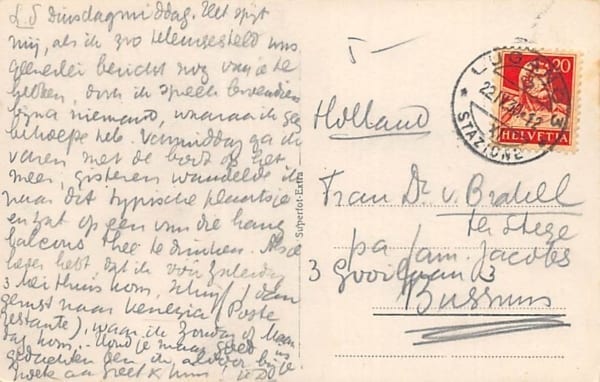 L.S dinsdagmiddag. Het spijt
mij, als ik zoo teleurgesteld was
geenerlei bericht nog van je te
hebben, doch ik spreek bovendien
bijna niemand, waaraan ik geen
behoefte heb. Vanmiddag ga ik
varen met de boot op het
meer, gisteren wandelde ik
naar dit typische plaatsje
en zat op een van die hang
balcons thee te drinken. Als je
hebt, dat ik voor Zaterdag
3 Mei thuis kom, schrijf dan
gerust naar Venezia (Poste
restante), waar ik Zondag of Maan
dag kom. Houd je maar goed
gedachten ben ik altijd bij je
groet
Superfot-Extra
LUGANO
22.IV.
STAZIONE
20
HELVETIA
Holland
Frau Dr. v. Brakell
ter Stege
pa fam. Jacobs
3 Gooilaan 3
Bussum